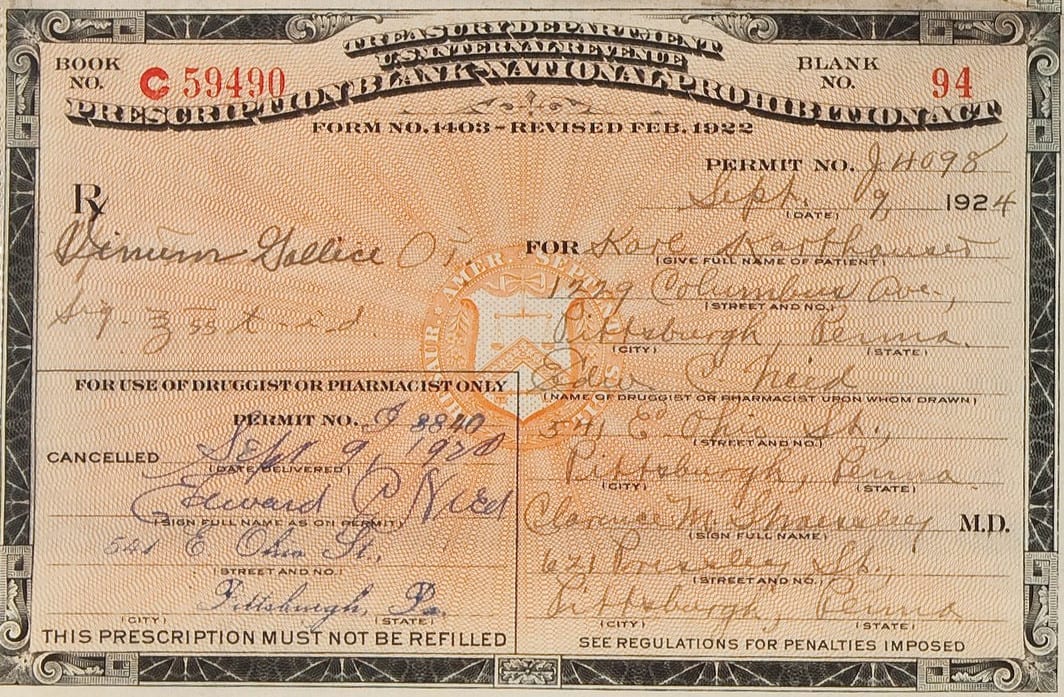 TREASURY DEPARTMENT
U.S. INTERNAL REVENUE
PRESCRIPTION BLANK-NATIONAL PROHIBITION ACT
BOOK NO. C 59490
BLANK NO. 94
FORM NO. 1403 - REVISED FEB. 1922
PERMIT NO. J 4098
Sept. 9, 1924
(DATE)
Rx
Vinum Gallice
Sig. ss t-i-d
FOR Karl Karthauser
(GIVE FULL NAME OF PATIENT)
1229 Columbus Ave,
(STREET AND NO.)
Pittsburgh, Penna.
(CITY) (STATE)
C. Nied
(NAME OF DRUGGIST OR PHARMACIST UPON WHOM DRAWN)
541 E. Ohio St.,
(STREET AND NO.)
Pittsburgh, Penna.
(CITY) (STATE)
Clarence M. M.D.
(SIGN FULL NAME)
621 St.,
(STREET AND NO.)
Pittsburgh, Penna
(CITY) (STATE)
SEE REGULATIONS FOR PENALTIES IMPOSED
FOR USE OF DRUGGIST OR PHARMACIST ONLY
PERMIT NO. 3840
CANCELLED Sept 9,
(DATE DELIVERED)
Edward C Nied
(SIGN FULL NAME AS ON PERMIT)
541 E. Ohio St.
(STREET AND NO.)
Pittsburgh, Pa.
(CITY) (STATE)
THIS PRESCRIPTION MUST NOT BE REFILLED